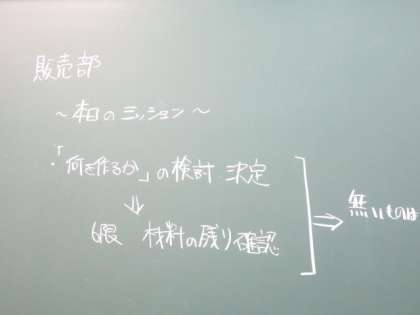 販売部
～本日のミッション～
・「何を作るか」の検討・決定
⇓
6限 材料の残り確認
⇒ 無いものは